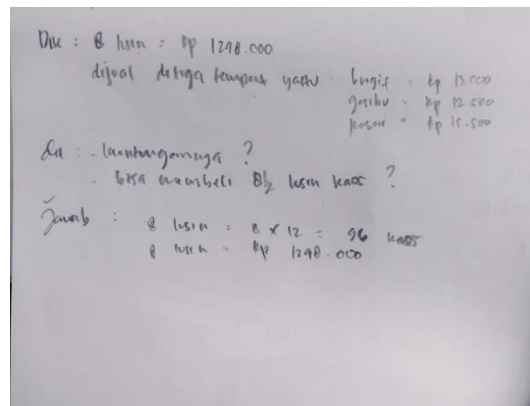 Dik : 8 lusin = Rp 1298.000
dijual ditiga tempat yaitu bugis = Rp 13.000
gasibu = Rp 12.500
pasar = Rp 15.500
dit : - keuntungannya ?
- bisa membeli 8½ lusin kaos ?
Jawab : 8 lusin = 8 x 12 = 96 kaos
8 lusin = Rp 1298.000